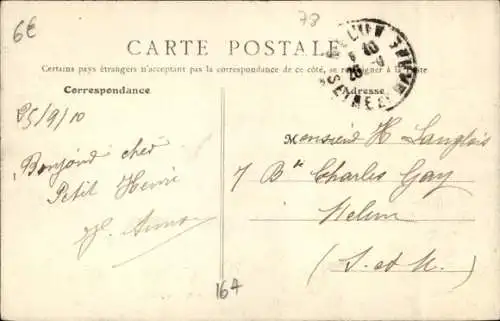 6€
73
CARTE POSTALE
Certains pays étrangers n'acceptant pas la correspondance de ce côté, se renseigner à la Poste
Correspondance
Adresse
25/9/10
Bonjour cher
Petit Henri
Monsieur H Langlois
7 Bd Charles Gay
Melun
(S. et M.)
164